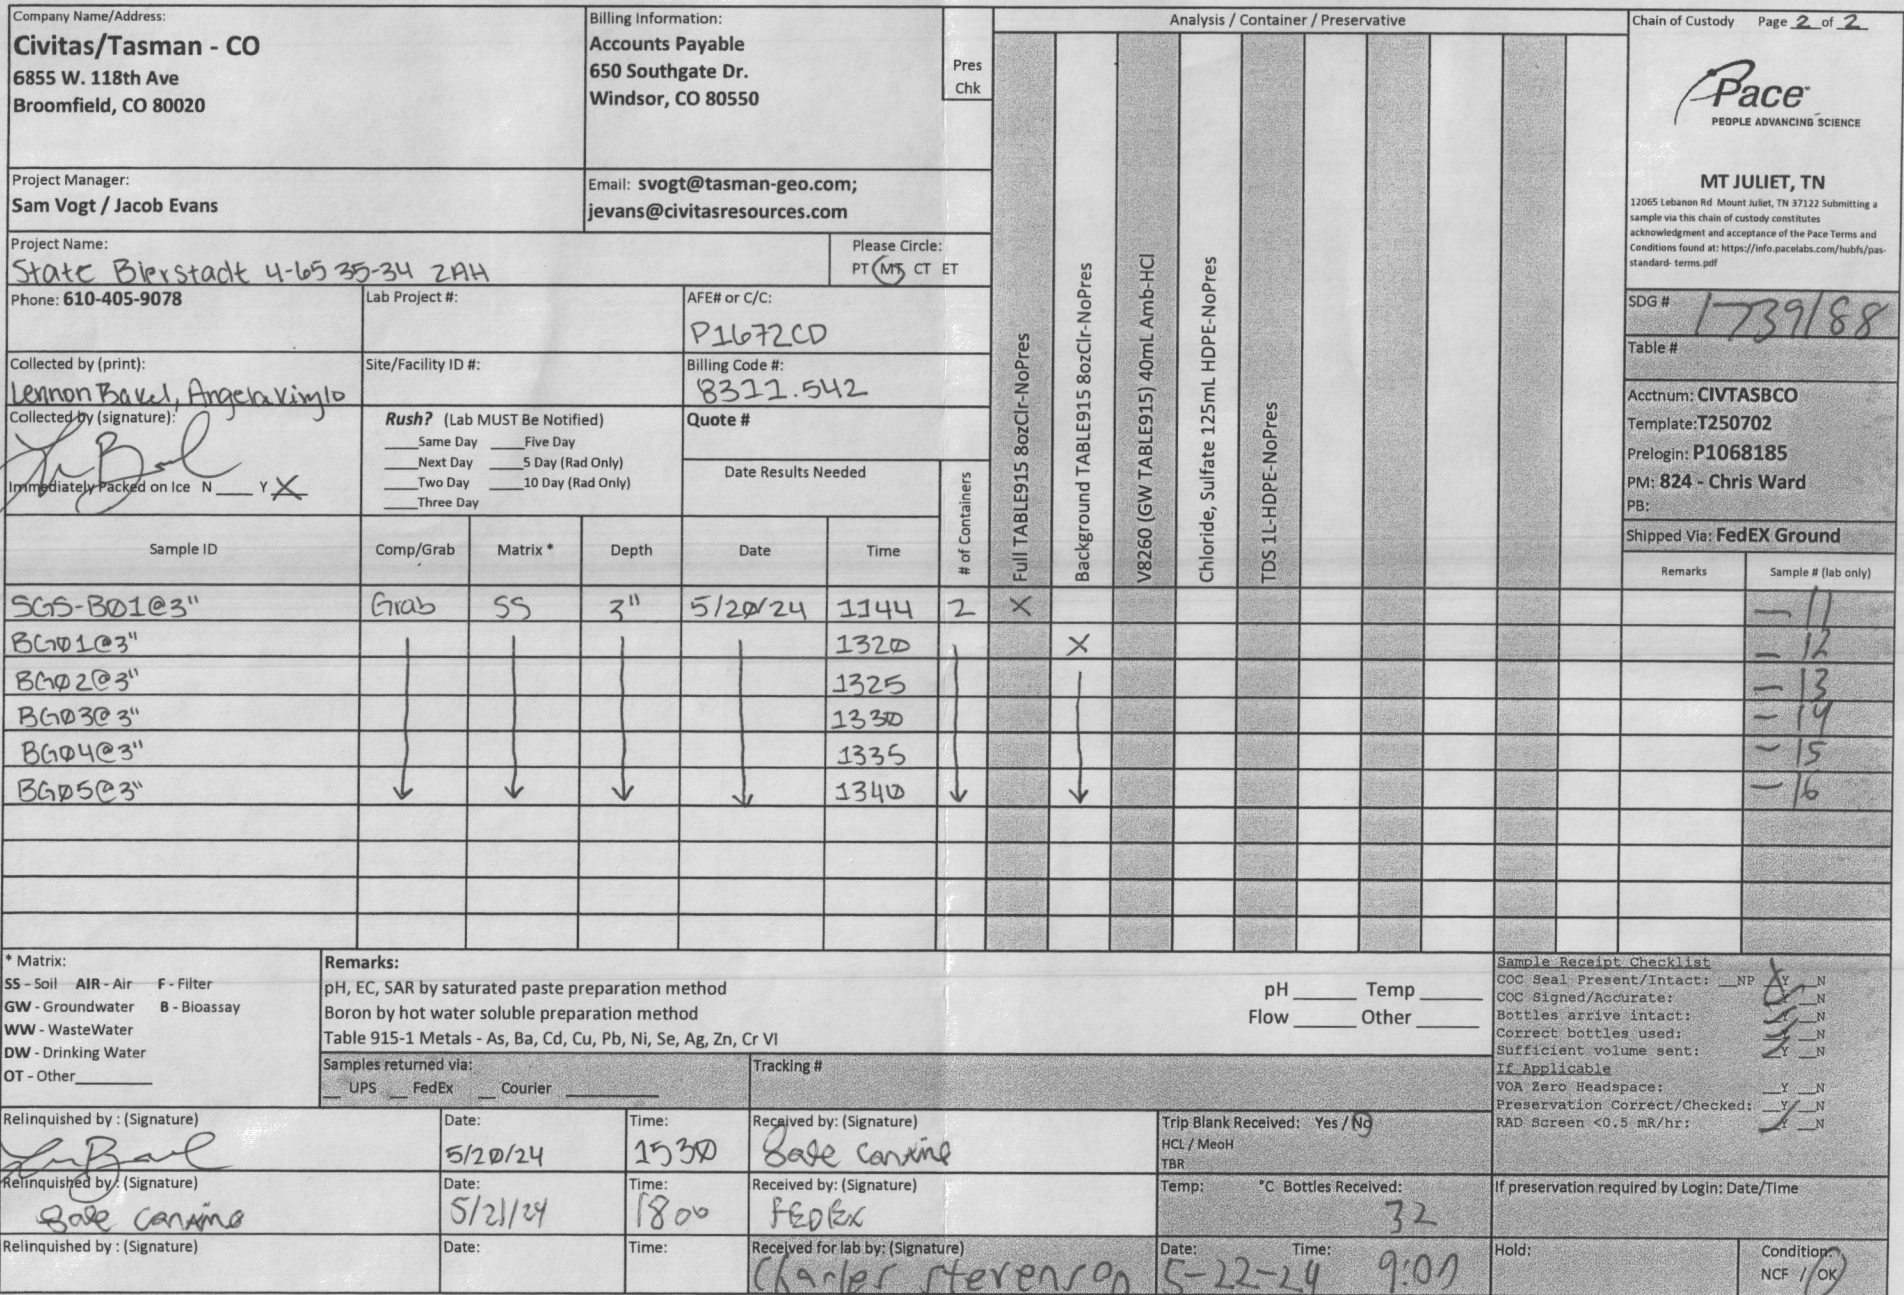 Company Name/Address:
Civitas/Tasman - CO
6855 W. 118th Ave
Broomfield, CO 80020
Billing Information:
Accounts Payable
650 Southgate Dr.
Windsor, CO 80550
Pres
Chk
Analysis / Container / Preservative
Chain of Custody Page 2 of 2
Pace
PEOPLE ADVANCING SCIENCE
MT JULIET, TN
12065 Lebanon Rd Mount Juliet, TN 37122 Submitting a
sample via this chain of custody constitutes
acknowledgment and acceptance of the Pace Terms and
Conditions found at: https://info.pacelabs.com/hubfs/pas-
standard- terms.pdf
Project Manager:
Sam Vogt / Jacob Evans
Email: svogt@tasman-geo.com;
jevans@civitasresources.com
Project Name:
State Bierstadt 4-65 35-34 2AH
Please Circle:
PT MT CT ET
Phone: 610-405-9078
Lab Project #:
AFE# or C/C:
P1672CD
Collected by (print):
Lennon Bakel, Angela
Site/Facility ID #:
Billing Code #:
8311.542
Collected by (signature):
Immediately Packed on Ice N ____ Y X
Rush? (Lab MUST Be Notified)
____Same Day ____Five Day
____Next Day ____5 Day (Rad Only)
____Two Day ____10 Day (Rad Only)
____Three Day
Quote #
Date Results Needed
# of Containers
Full TABLE915 8ozClr-NoPres
Background TABLE915 8ozClr-NoPres
V8260 (GW TABLE915) 40mL Amb-HCl
Chloride, Sulfate 125mL HDPE-NoPres
TDS 1L-HDPE-NoPres
SDG # 1739188
Table #
Acctnum: CIVTASBCO
Template:T250702
Prelogin: P1068185
PM: 824 - Chris Ward
PB:
Shipped Via: FedEX Ground
Sample ID Comp/Grab Matrix * Depth Date Time Remarks Sample # (lab only)
SGS-B01@3" Grab SS 3" 5/20/24 1144 2 X - 11
BG01@3" 1320 X - 12
BG02@3" 1325 - 13
BG03@3" 1330 - 14
BG04@3" 1335 - 15
BG05@3" 1340 - 16
* Matrix:
SS - Soil AIR - Air F - Filter
GW - Groundwater B - Bioassay
WW - WasteWater
DW - Drinking Water
OT - Other__________
Remarks:
pH, EC, SAR by saturated paste preparation method
Boron by hot water soluble preparation method
Table 915-1 Metals - As, Ba, Cd, Cu, Pb, Ni, Se, Ag, Zn, Cr VI
pH ______ Temp ______
Flow ______ Other ______
Samples returned via:
__ UPS __ FedEx __ Courier __________
Tracking #
Sample Receipt Checklist
COC Seal Present/Intact: __NP __Y __N
COC Signed/Accurate: __Y __N
Bottles arrive intact: __Y __N
Correct bottles used: __Y __N
Sufficient volume sent: __Y __N
If Applicable
VOA Zero Headspace: __Y __N
Preservation Correct/Checked: __Y __N
RAD Screen <0.5 mR/hr: __Y __N
Relinquished by : (Signature)
Date:
5/20/24
Time:
1530
Received by: (Signature)
Trip Blank Received: Yes / No
HCL / MeoH
TBR
Relinquished by : (Signature)
Date:
5/21/24
Time:
1800
Received by: (Signature)
FEDEX
Temp: °C Bottles Received:
32
If preservation required by Login: Date/Time
Relinquished by : (Signature)
Date:
Time:
Received for lab by: (Signature)
Charles Stevenson
Date:
5-22-24
Time:
9:00
Hold:
Condition:
NCF / OK